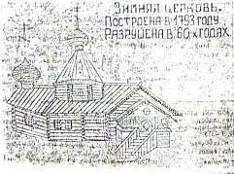 ЗИМНЯЯ ЦЕРКОВЬ.
ПОСТРОЕНА В 1793 ГОДУ.
РАЗРУШЕНА В 60-х ГОДАХ.